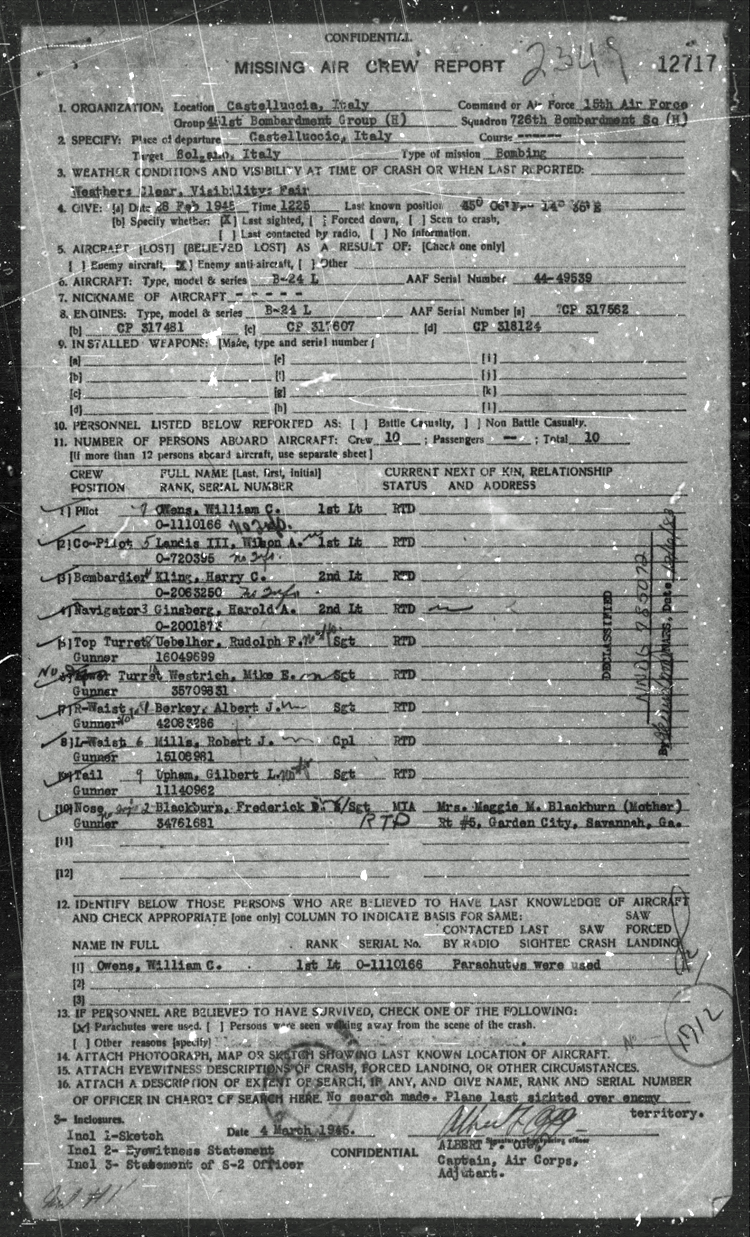 CONFIDENTIAL
MISSING AIR CREW REPORT 2349 12717
1. ORGANIZATION: Location Castelluccia, Italy Command or Air Force 15th Air Force
Group 451st Bombardment Group (H) Squadron 726th Bombardment Sq (H)
2. SPECIFY: Place of departure Castelluccio, Italy Course ------
Target Bolzano, Italy Type of mission Bombing
3. WEATHER CONDITIONS AND VISIBILITY AT TIME OF CRASH OR WHEN LAST REPORTED:
Weather: Clear, Visibility: Fair
4. GIVE: [a] Date 28 Feb 1945 Time 1225 Last known position
[b] Specify whether: [X] Last sighted, [ ] Forced down, [ ] Seen to crash,
[ ] Last contacted by radio, [ ] No information.
5. AIRCRAFT [LOST] [BELIEVED LOST] AS A RESULT OF: [Check one only]
[ ] Enemy aircraft, [X] Enemy anti-aircraft, [ ] Other
6. AIRCRAFT: Type, model & series B-24 L AAF Serial Number 44-49539
7. NICKNAME OF AIRCRAFT - - - - -
8. ENGINES: Type, model & series B-24 L AAF Serial Number [a] CP 317562
[b] CP 317481 [c] CP 317607 [d] CP 318124
9. INSTALLED WEAPONS: [Make, type and serial number]
[a] [e] [i]
[b] [f] [j]
[c] [g] [k]
[d] [h] [l]
10. PERSONNEL LISTED BELOW REPORTED AS: [ ] Battle Casualty, [ ] Non Battle Casualty.
11. NUMBER OF PERSONS ABOARD AIRCRAFT: Crew 10 ; Passengers -- ; Total 10
[If more than 12 persons aboard aircraft, use separate sheet]
CREW FULL NAME [Last, first, initial] CURRENT NEXT OF KIN, RELATIONSHIP
POSITION RANK, SERIAL NUMBER STATUS AND ADDRESS
[1] Pilot 7 Owens, William C. 1st Lt RTD
O-1110166 No Info.
[2] Co-Pilot 5 Landis III, Wilson A. 1st Lt RTD
O-720395 no Info.
[3] Bombardier Kling, Harry C. 2nd Lt RTD
O-2063250 No Info
[4] Navigator 3 Ginsberg, Harold A. 2nd Lt RTD
O-200187
[5] Top Turret Uebelher, Rudolph F. Sgt RTD
Gunner 16049699
Turret Westrich, Mike E. Sgt RTD
Gunner 35709831
[7] R-Waist Berkey, Albert J. Sgt RTD
Gunner 42083286
[8] L-Waist 6 Mills, Robert J. Cpl RTD
Gunner 15108981
Tail 9 Upham, Gilbert L. Sgt RTD
Gunner 11140962
[10] Nose 2 Blackburn, Frederick D. S/Sgt MIA Mrs. Maggie M. Blackburn (Mother)
Gunner 34761681 RTD Rt #5, Garden City, Savannah, Ga.
[11]
[12]
DECLASSIFIED
NNDG 785072
By NARS, Date
12. IDENTIFY BELOW THOSE PERSONS WHO ARE BELIEVED TO HAVE LAST KNOWLEDGE OF AIRCRAFT
AND CHECK APPROPRIATE [one only] COLUMN TO INDICATE BASIS FOR SAME: SAW
CONTACTED LAST SAW FORCED
NAME IN FULL RANK SERIAL No. BY RADIO SIGHTED CRASH LANDING
[1] Owens, William C. 1st Lt O-1110166 Parachutes were used
[2]
[3]
13. IF PERSONNEL ARE BELIEVED TO HAVE SURVIVED, CHECK ONE OF THE FOLLOWING:
[X] Parachutes were used. [ ] Persons were seen walking away from the scene of the crash.
[ ] Other reasons [specify]
1712
14. ATTACH PHOTOGRAPH, MAP OR SKETCH SHOWING LAST KNOWN LOCATION OF AIRCRAFT.
15. ATTACH EYEWITNESS DESCRIPTIONS OF CRASH, FORCED LANDING, OR OTHER CIRCUMSTANCES.
16. ATTACH A DESCRIPTION OF EXTENT OF SEARCH, IF ANY, AND GIVE NAME, RANK AND SERIAL NUMBER
OF OFFICER IN CHARGE OF SEARCH HERE. No search made. Plane last sighted over enemy
territory.
3- Inclosures.
Incl 1-Sketch Date 4 March 1945.
Incl 2- Eyewitness Statement CONFIDENTIAL ALBERT F.
Incl 3- Statement of S-2 Officer Captain, Air Corps,
Adjutant.